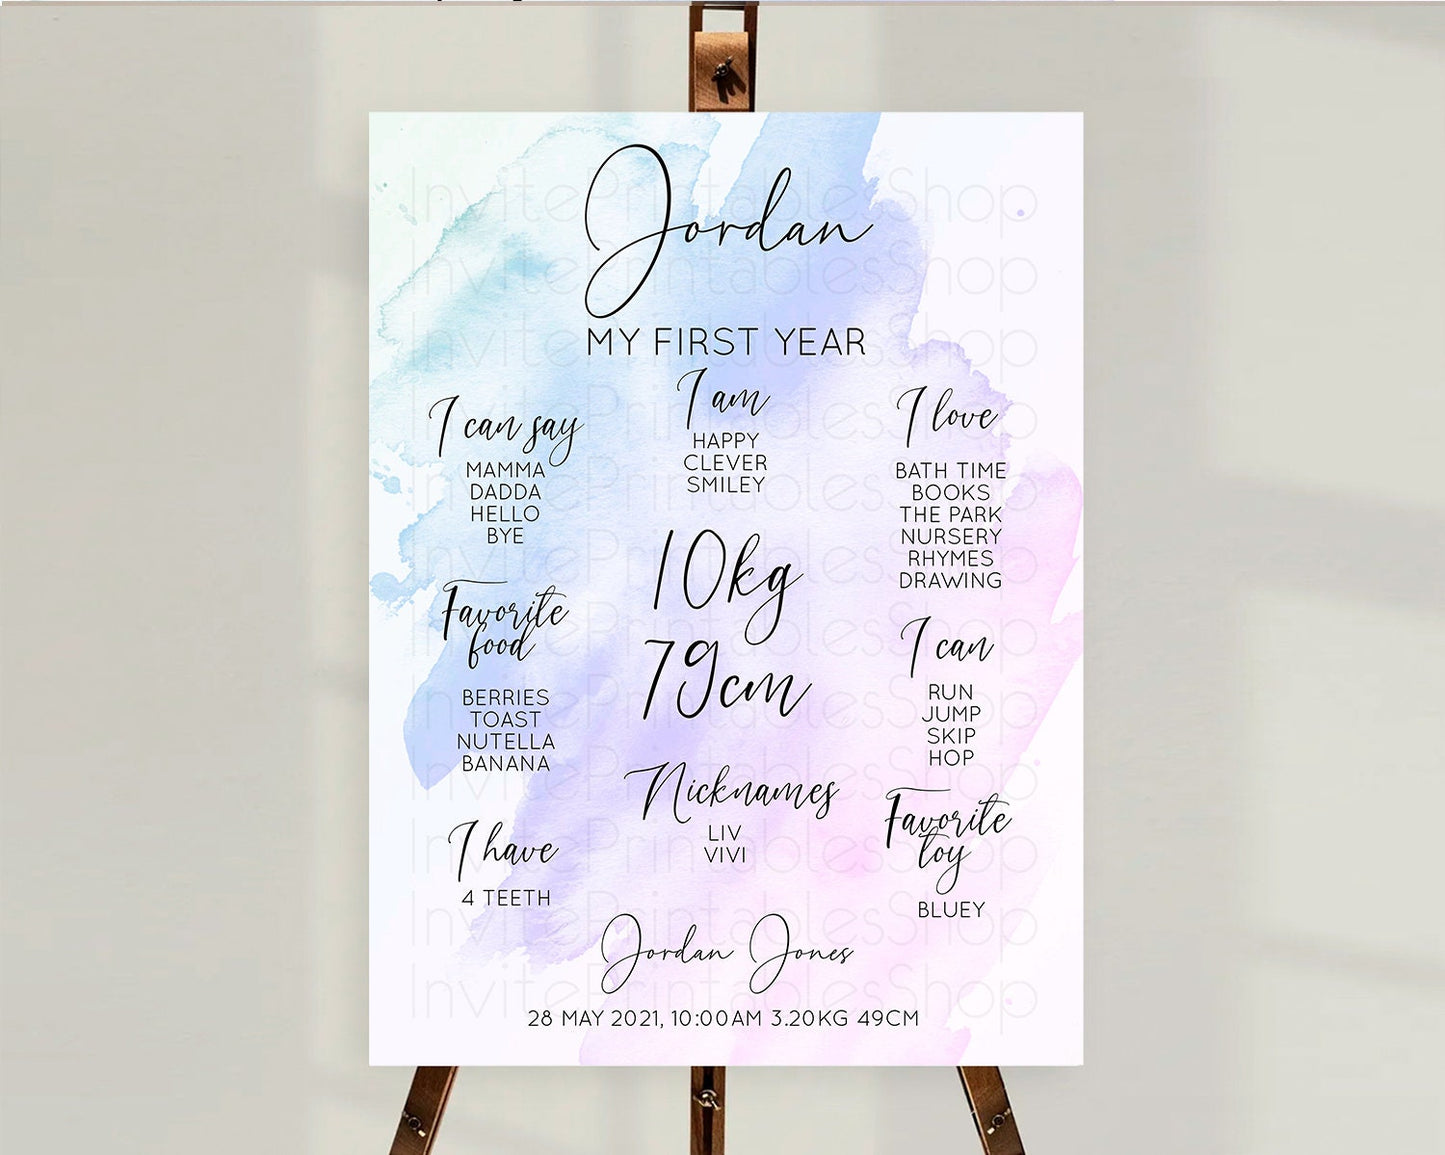 Jordan
MY FIRST YEAR
I can say
MAMMA
DADDA
HELLO
BYE
Favorite
food
BERRIES
TOAST
NUTELLA
BANANA
I have
4 TEETH
I am
HAPPY
CLEVER
SMILEY
10kg
79cm
Nicknames
LIV
VIVI
I love
BATH TIME
BOOKS
THE PARK
NURSERY
RHYMES
DRAWING
I can
RUN
JUMP
SKIP
HOP
Favorite
toy
BLUEY
Jordan Jones
28 MAY 2021, 10:00AM 3.20KG 49CM
InvitePrintablesShop
InvitePrintablesShop
InvitePrintablesShop
InvitePrintablesShop
InvitePrintablesShop
InvitePrintablesShop
InvitePrintablesShop
InvitePrintablesShop
InvitePrintablesShop
InvitePrintablesShop
InvitePrintablesShop
InvitePrintablesShop